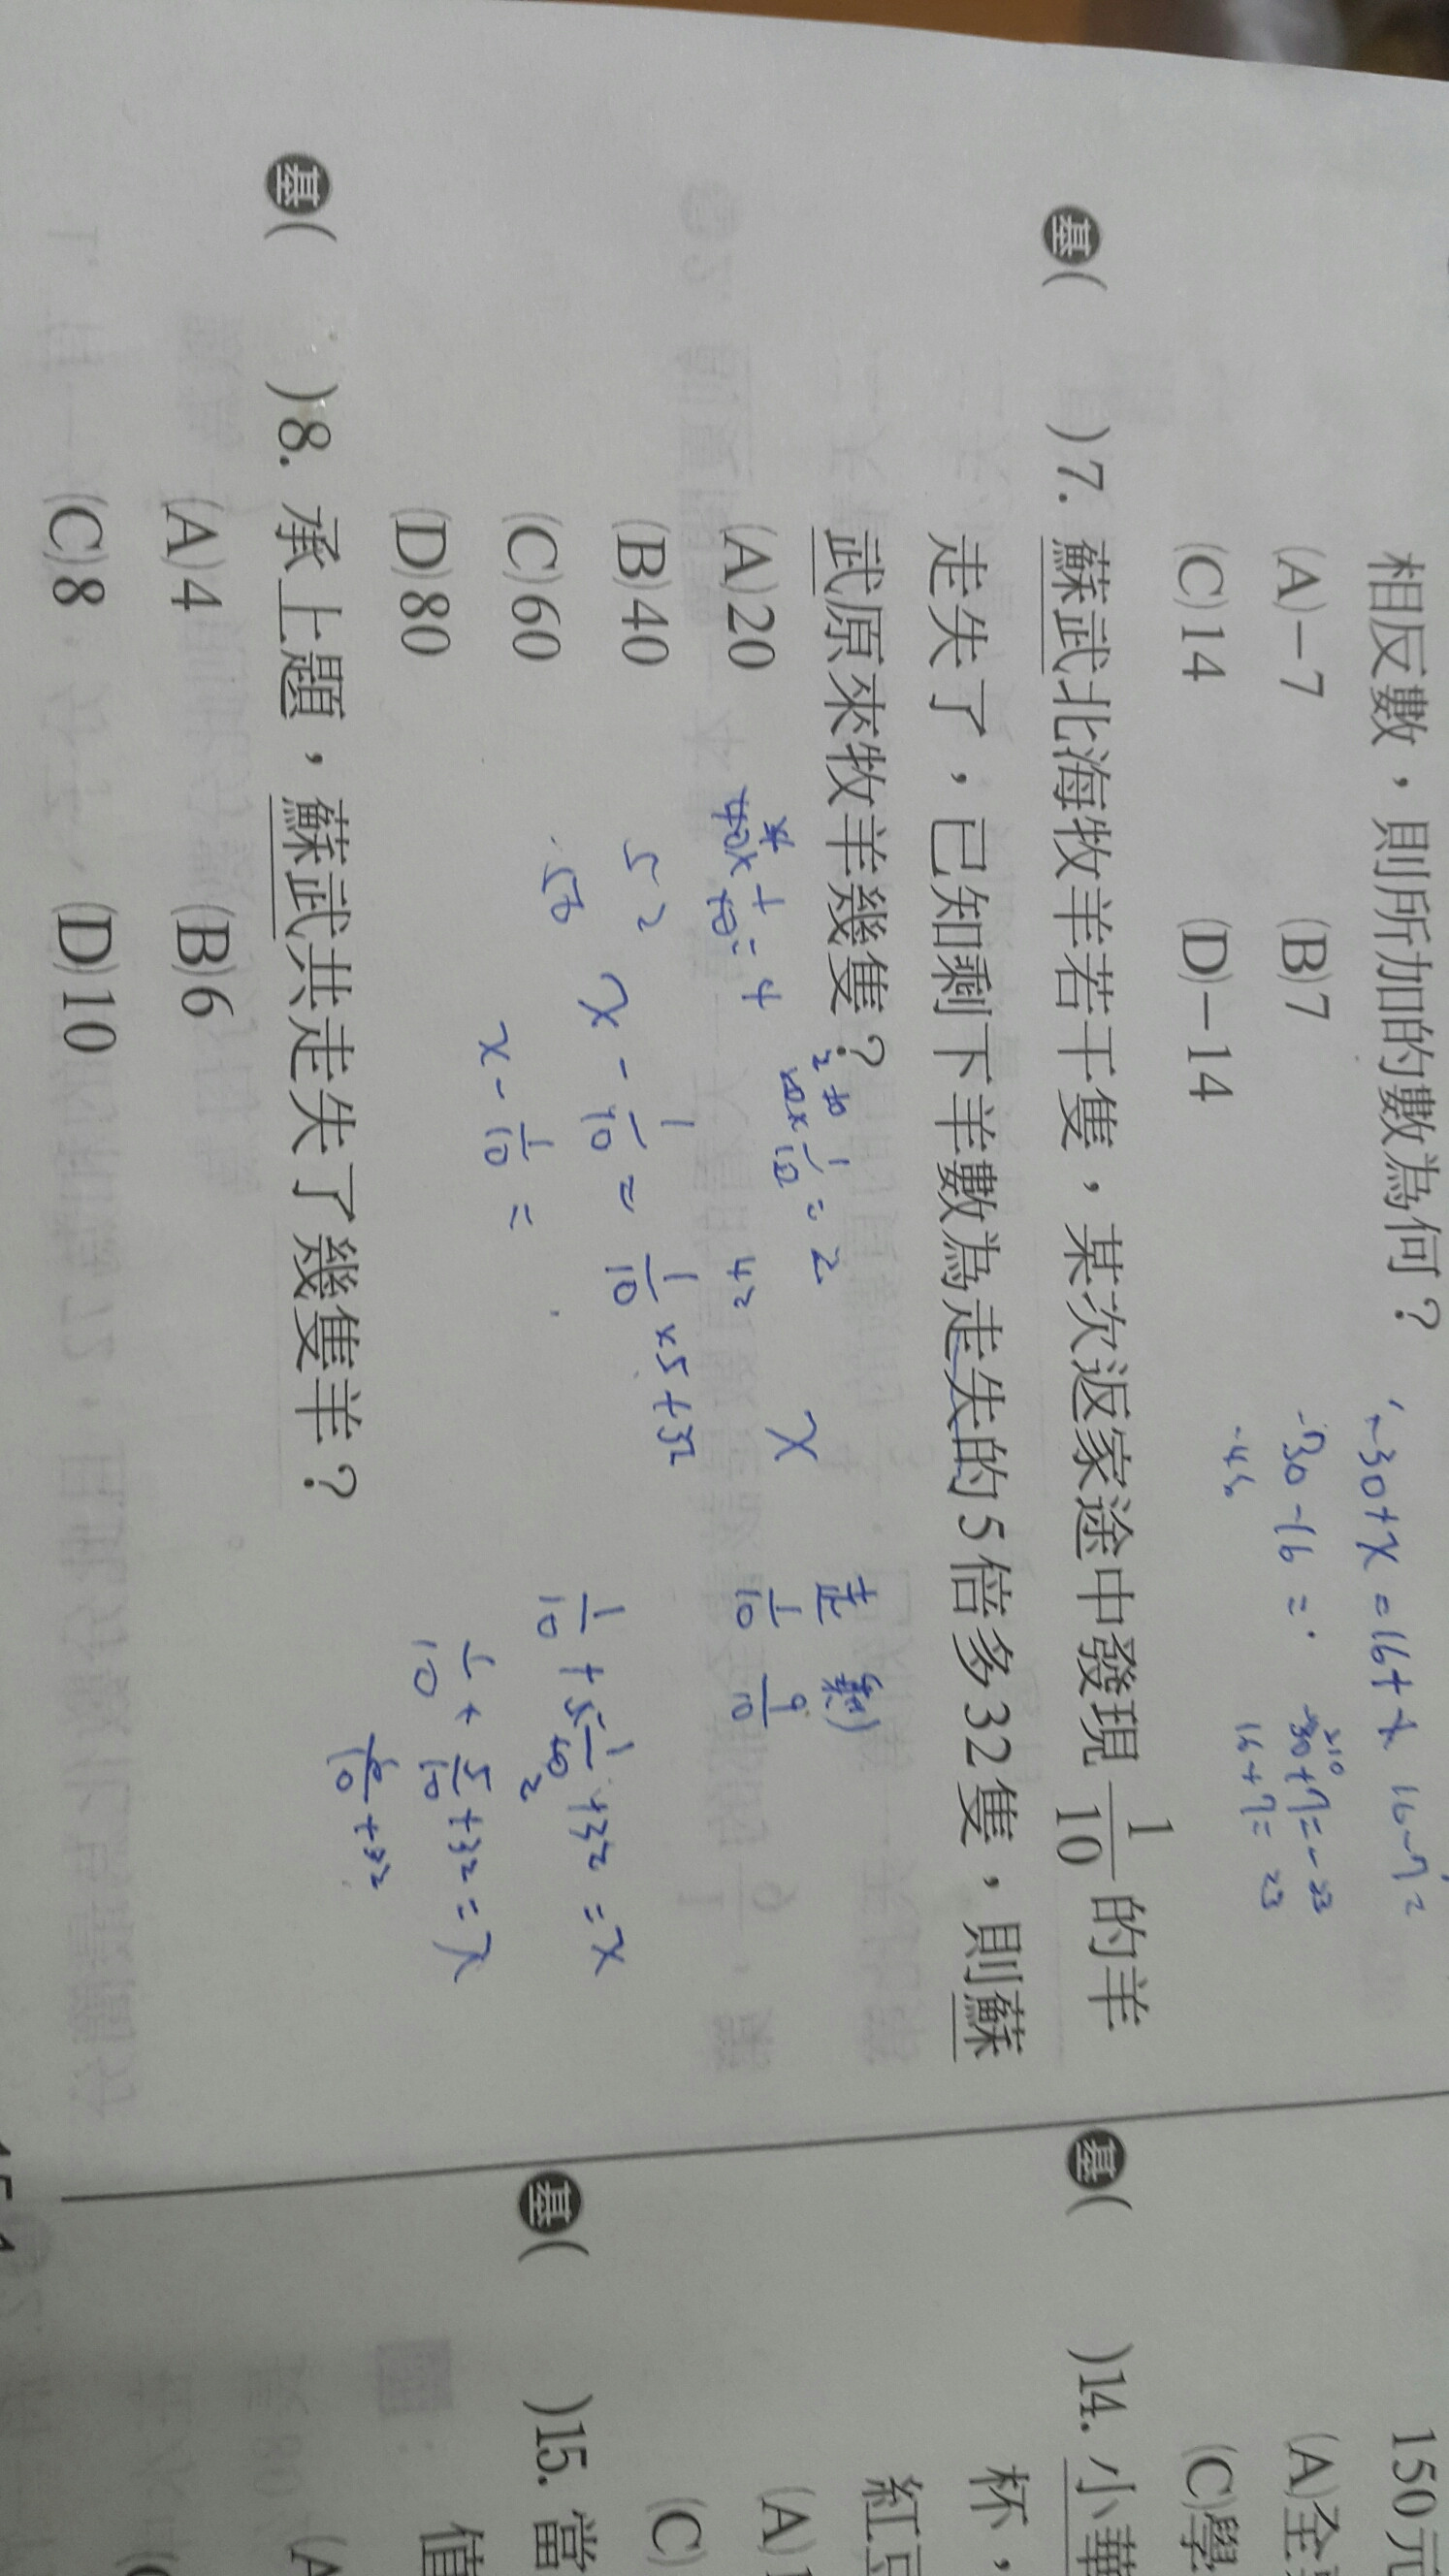 相反數，則所加的數為何？
(A)−7 (B)7
(C)14 (D)−14
基( )7. 蘇武北海牧羊若干隻，某次返家途中發現 1/10 的羊
走失了，已知剩下羊數為走失的5倍多32隻，則蘇
武原來牧羊幾隻？
(A)20
(B)40
(C)60
(D)80
基( )8. 承上題，蘇武共走失了幾隻羊？
(A)4 (B)6
(C)8 (D)10
-30+x=16+x
-30-16=
16+7=23
走 剩
1/10 9/10
x
x-1/10=1/10×5+32
x-1/10=
1/10+5/10+32=x
150元
(A)全
(C)學
基( )14. 小華
杯，
紅豆
(A)
(C)
基( )15. 當
值
(A